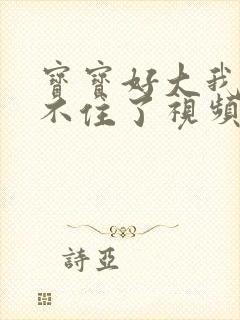 寶寶好大我
不住了視頻
詩亞